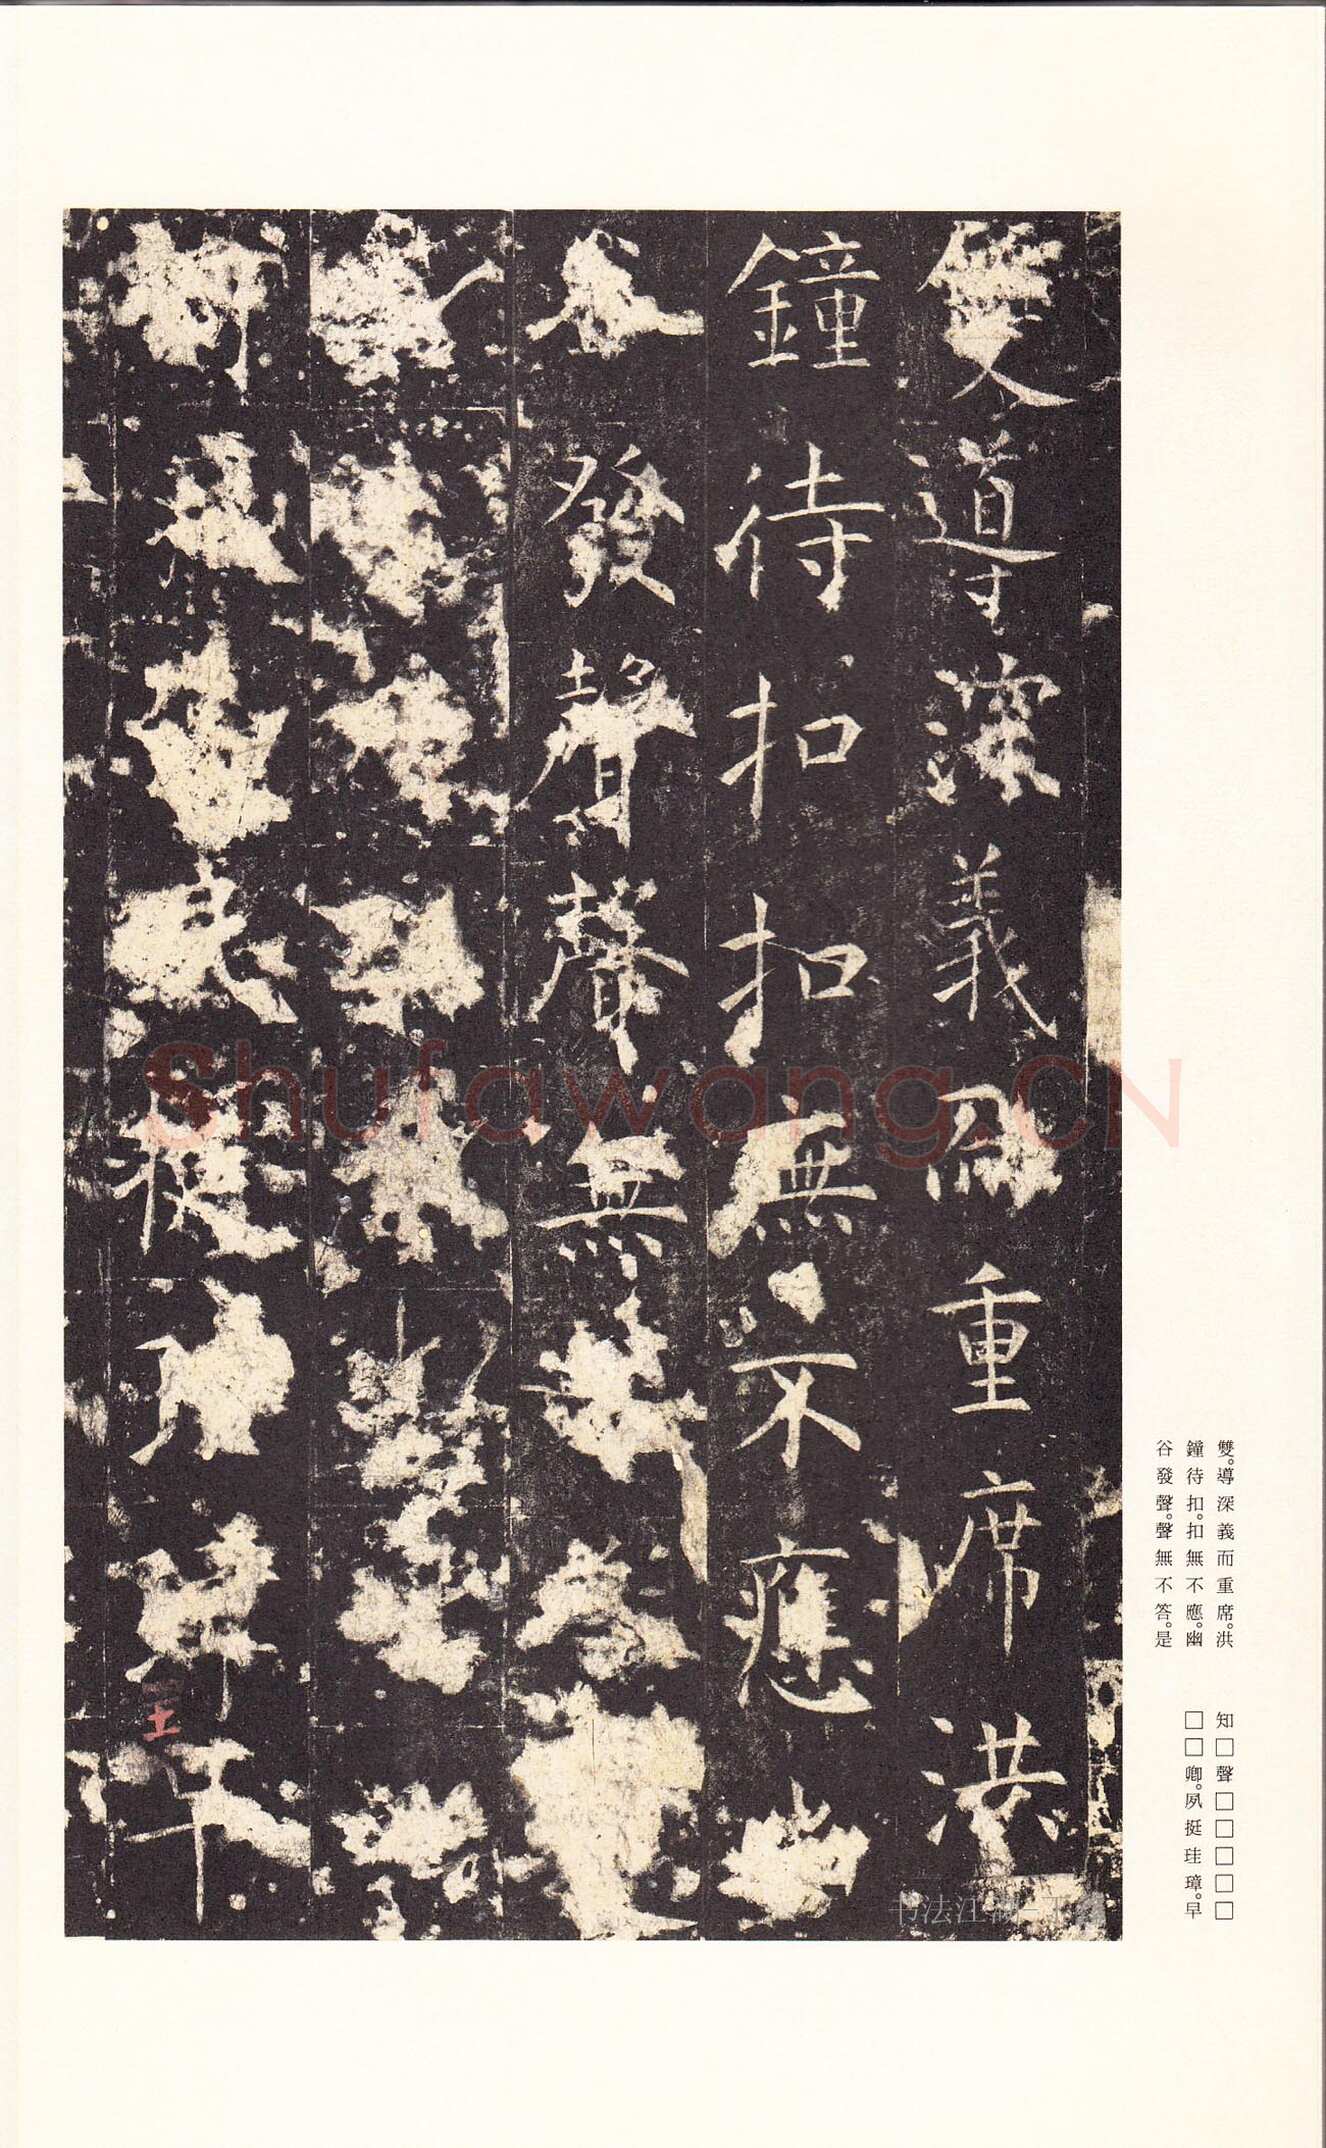 雙導深義而重席洪
鐘待扣扣無不應幽
谷發聲聲無不答是
知□聲□□□□□
□□卿夙挺珪璋早
雙。導深義而重席。洪
鐘待扣。扣無不應。幽
谷發聲。聲無不答。是
知□聲□□□□□
□□卿。夙挺珪璋。早
Shufawang.CN